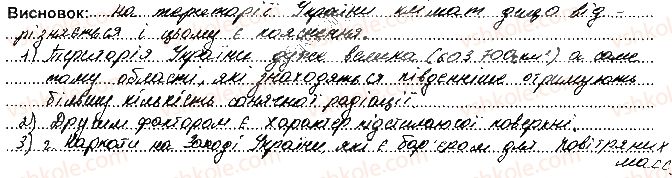 Висновок: на території України клімат дещо від-
різняється і цьому є пояснення.
1) Територія України дуже велика (603.700км²) а саме
тому області, які знаходяться південніше отримують
більшу кількість сонячної радіації.
2) Другим фактором є характер підстилаючої поверхні.
3) г Карпати на Заході України, які є бар'єром для повітряних
мас